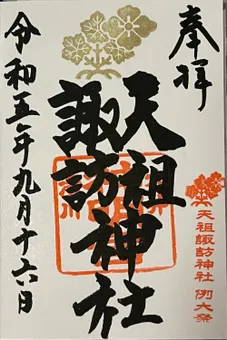 奉拝
天祖神社
諏訪
令和五年九月十六日
天祖諏訪神社 例大祭